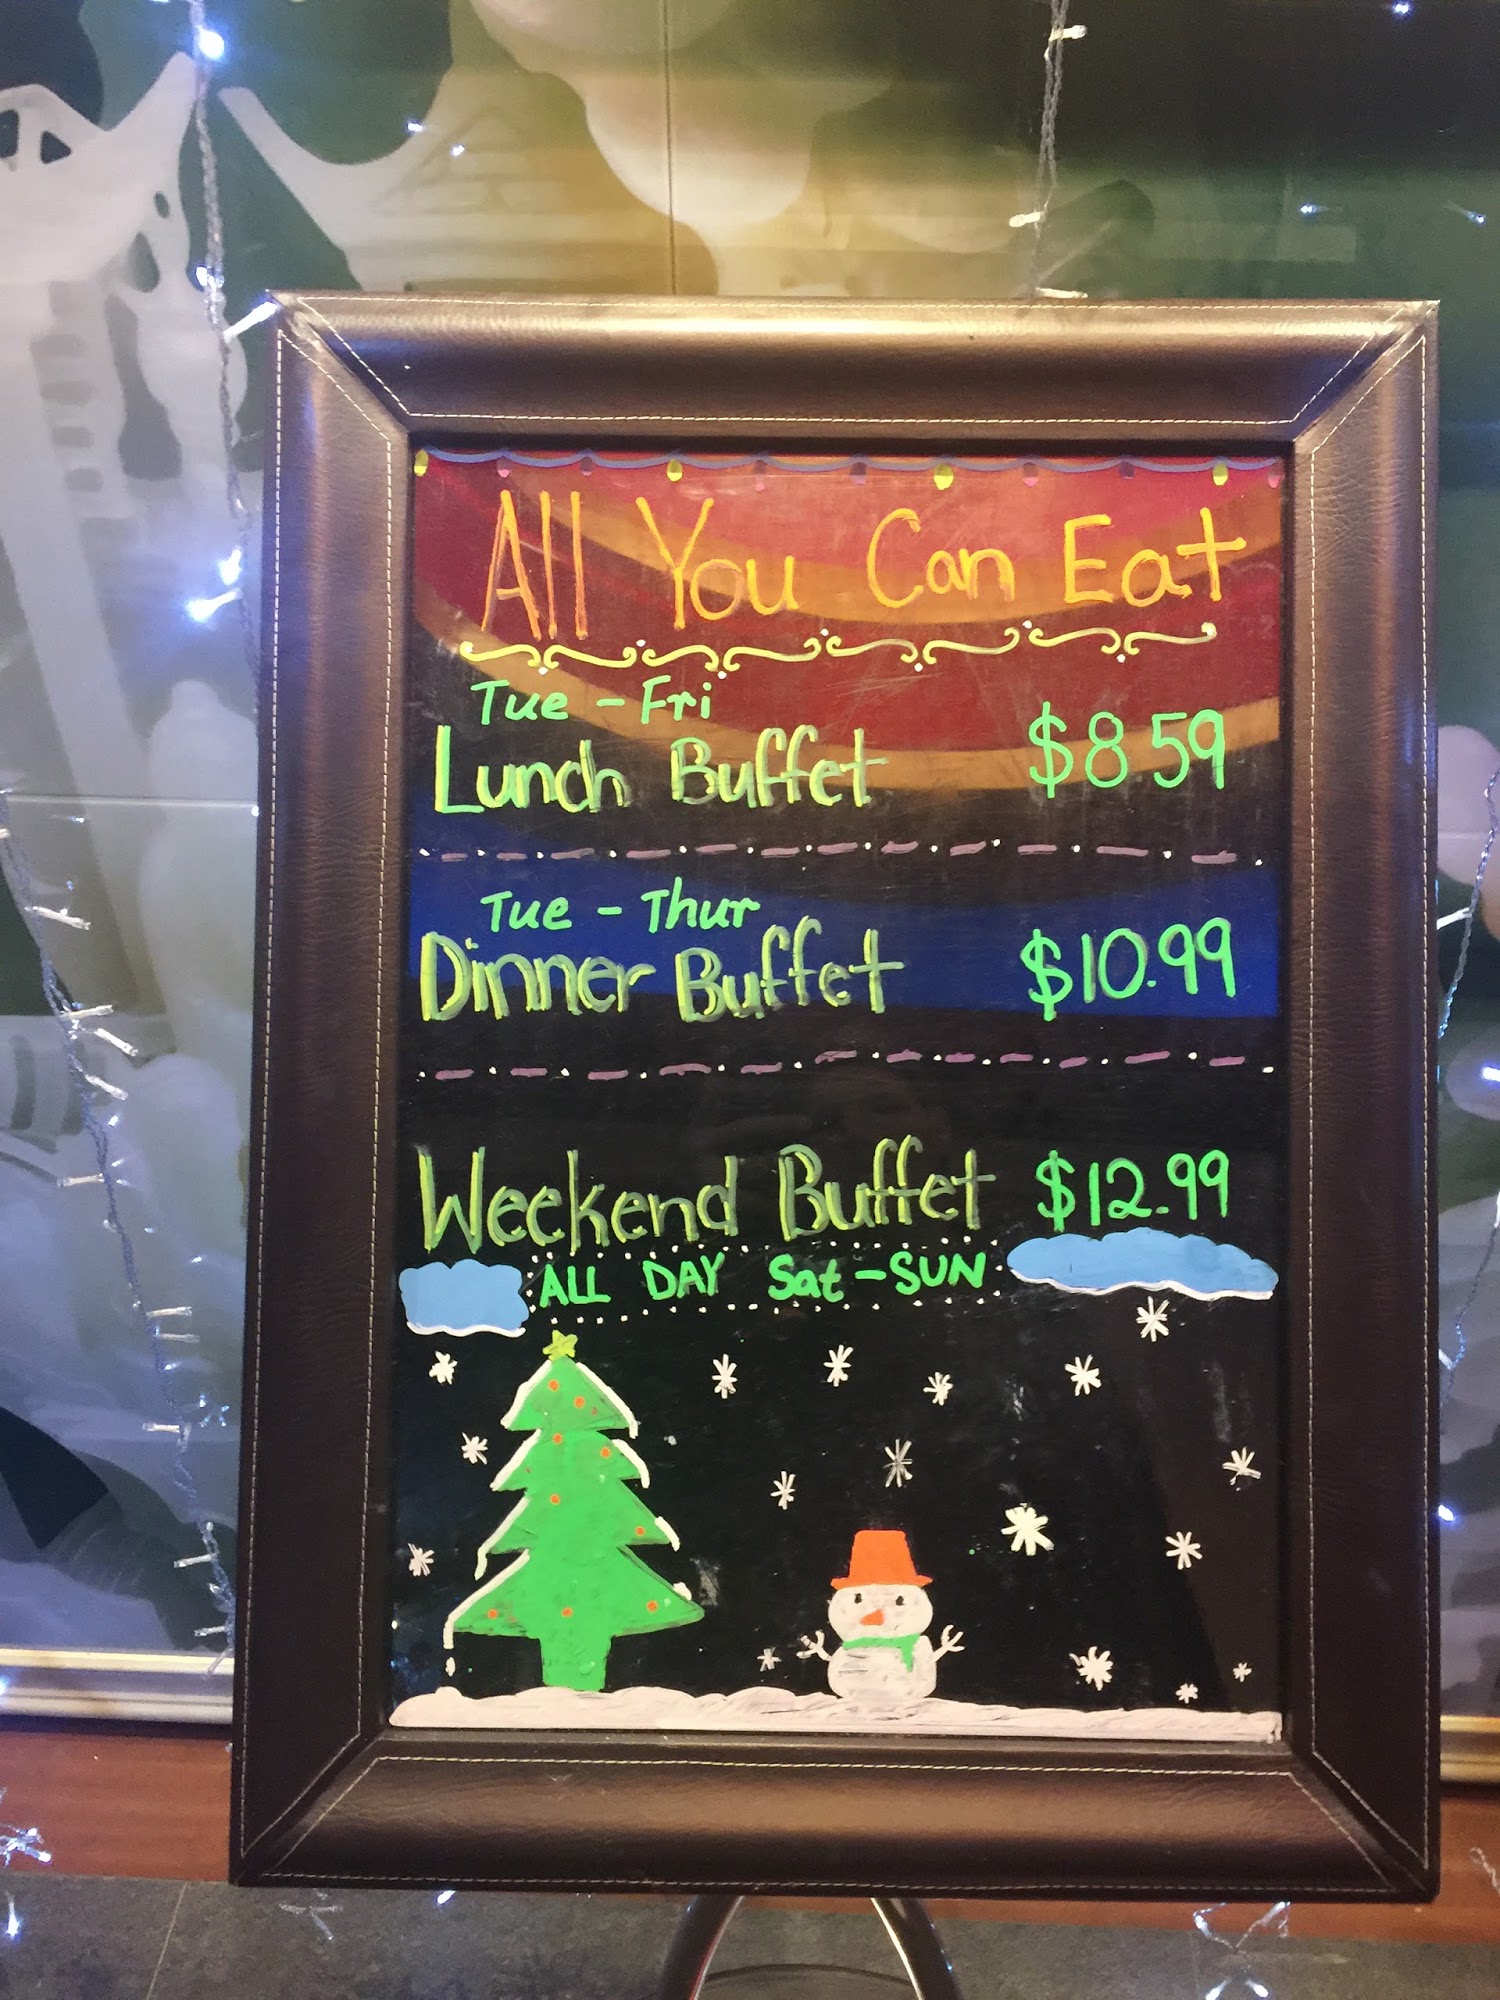 All You Can Eat
Tue - Fri
Lunch Buffet $8.59
Tue - Thur
Dinner Buffet $10.99
Weekend Buffet $12.99
ALL DAY Sat - SUN